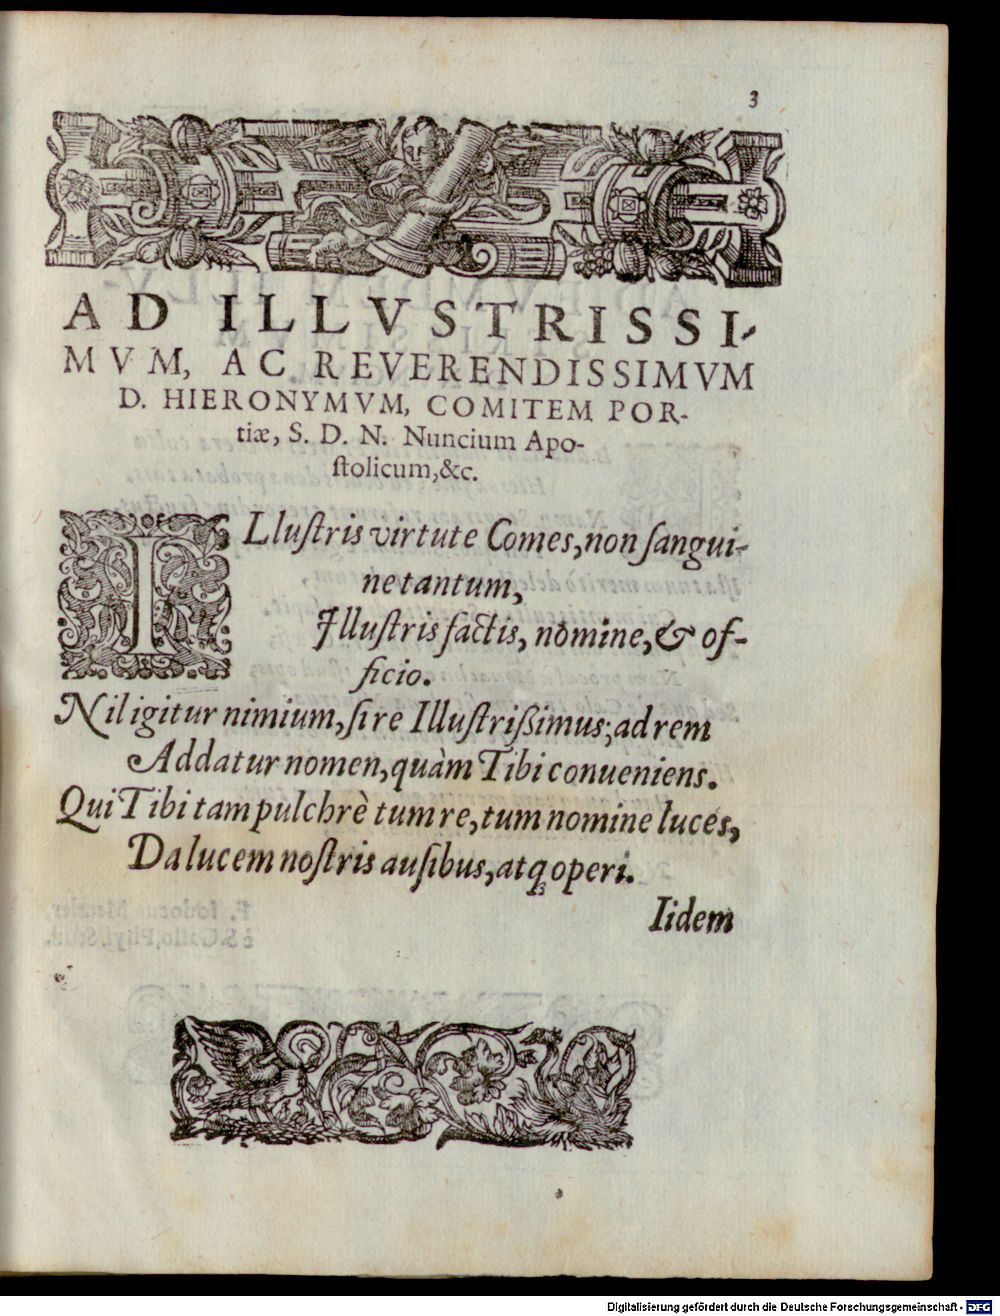 3
AD ILLVSTRISSI-
MVM, AC REVERENDISSIMVM
D. HIERONYMVM, COMITEM POR-
tiæ, S. D. N. Nuncium Apo-
ſtolicum,&c.
ILluſtris virtute Comes, non ſangui-
ne tantum,
Illuſtris factis, nomine, & of-
ficio.
Nil igitur nimium, ſi re Illuſtrißimus; ad rem
Addatur nomen, quàm Tibi conueniens.
Qui Tibi tam pulchrè tum re, tum nomine luces,
Da lucem noſtris auſibus, atq; operi.
Iidem
Digitalisierung gefördert durch die Deutsche Forschungsgemeinschaft - DFG